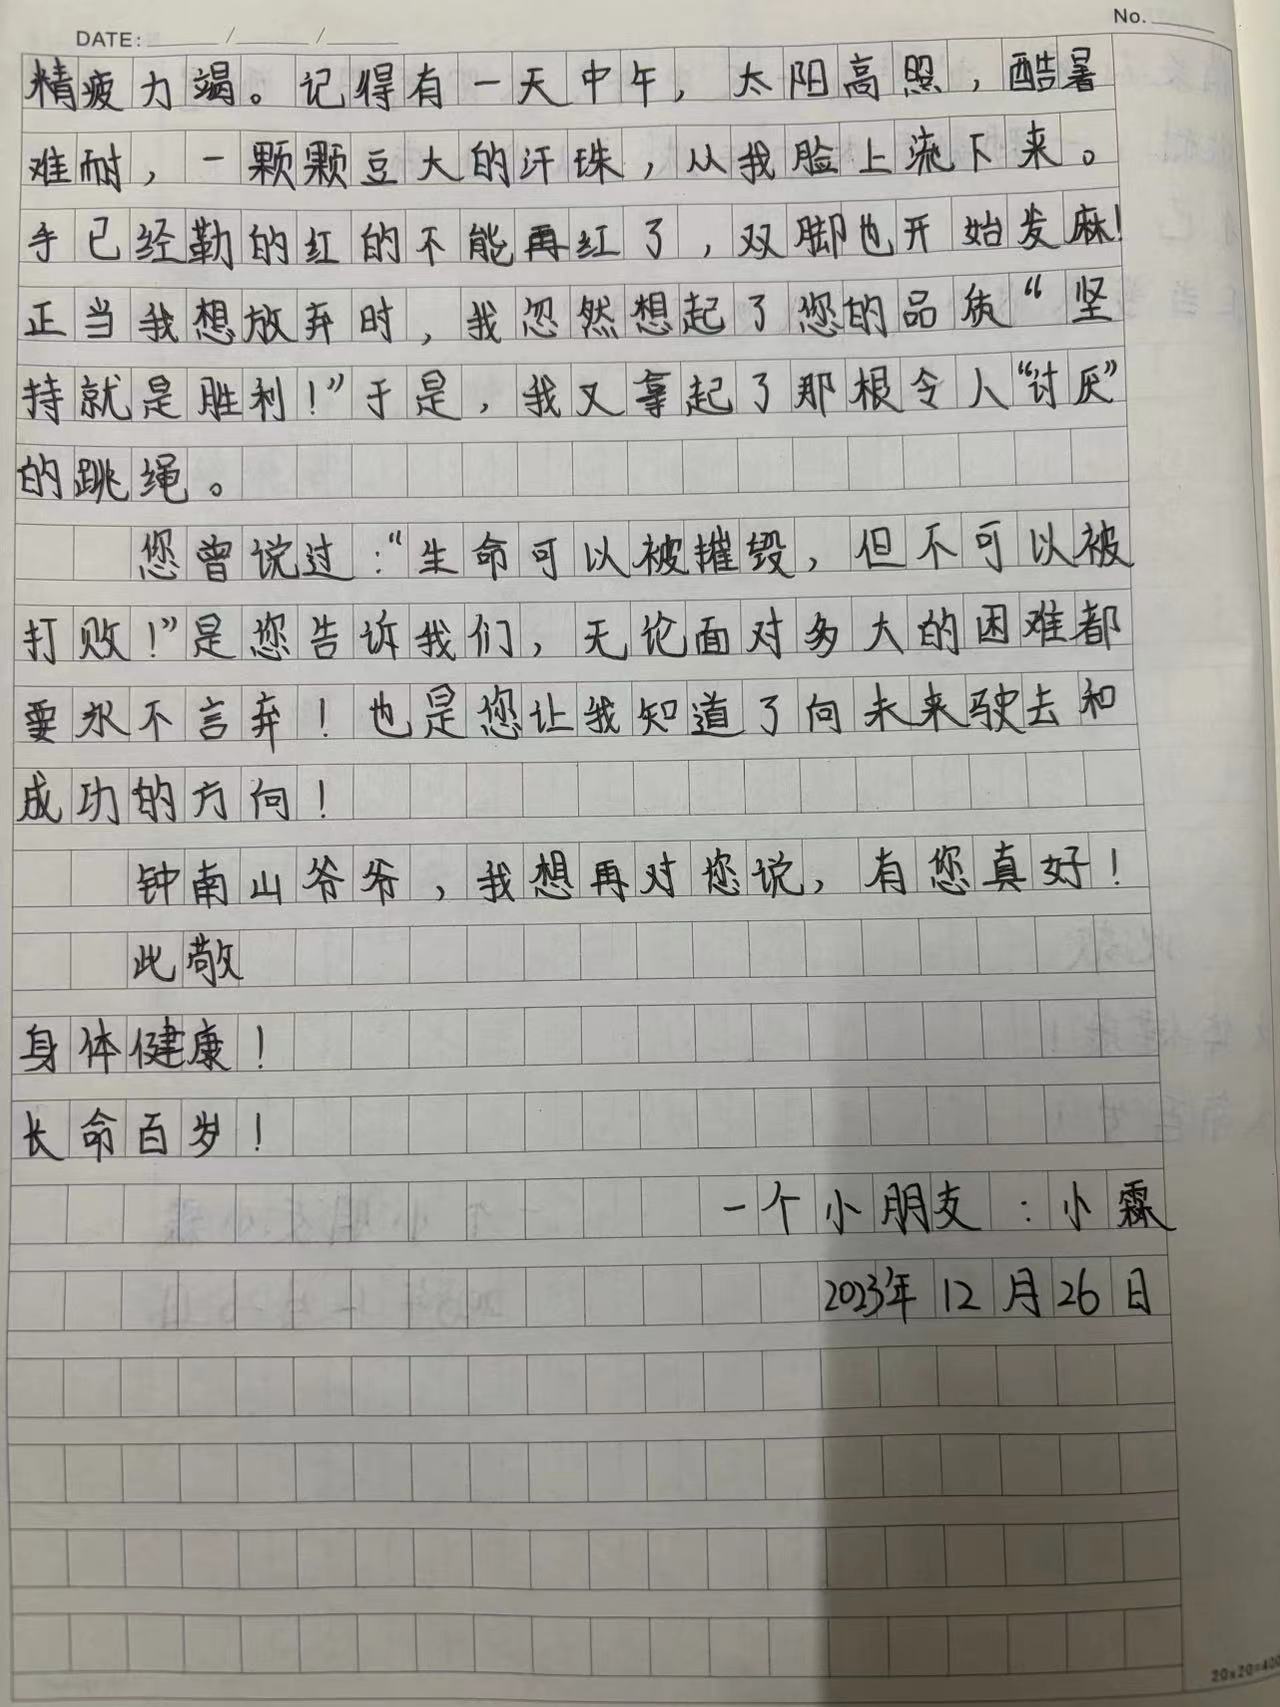 DATE: ____/____/____
No. ____
精疲力竭。记得有一天中午，太阳高照，酷暑
难耐，一颗颗豆大的汗珠，从我脸上流下来。
手已经勒的红的不能再红了，双脚也开始发麻！
正当我想放弃时，我忽然想起了您的品质“坚
持就是胜利！”于是，我又拿起了那根令人“讨厌”
的跳绳。
您曾说过：“生命可以被摧毁，但不可以被
打败！”是您告诉我们，无论面对多大的困难都
要永不言弃！也是您让我知道了向未来驶去和
成功的方向！
钟南山爷爷，我想再对您说，有您真好！
此敬
身体健康！
长命百岁！
一个小朋友：小霖
2023年12月26日
20x20=400